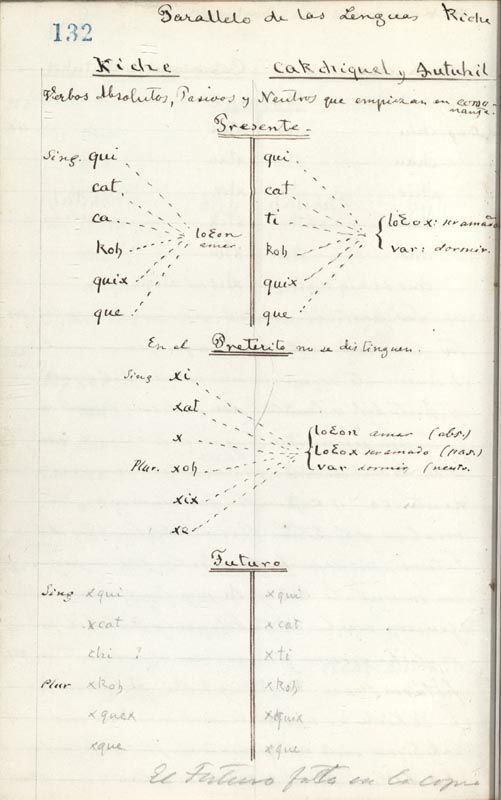 132
Parallelo de las Lenguas Kiche
Kiche
Cakchiquel y Zutuhil
Verbos Absolutos, Pasivos y Neutros que empiezan en conso
nante.
Presente.
Sing. qui
cat
ca
koh
quix
que
loɛon
amar
qui
cat
ti
koh
quix
que
loɛox: ser amado
var: dormir.
En el Preterito no se distinguen.
Sing xi
xat
x
Plur. xoh
xix
xe
loɛon amar (abs.)
loɛox ser amado (pas.)
var dormir (neutr.
Futuro
Sing xqui xqui
xcat xcat
chi ? xti
Plur xkoh xkoh
xquex xquix
xque xque
El Futuro falta en la copia